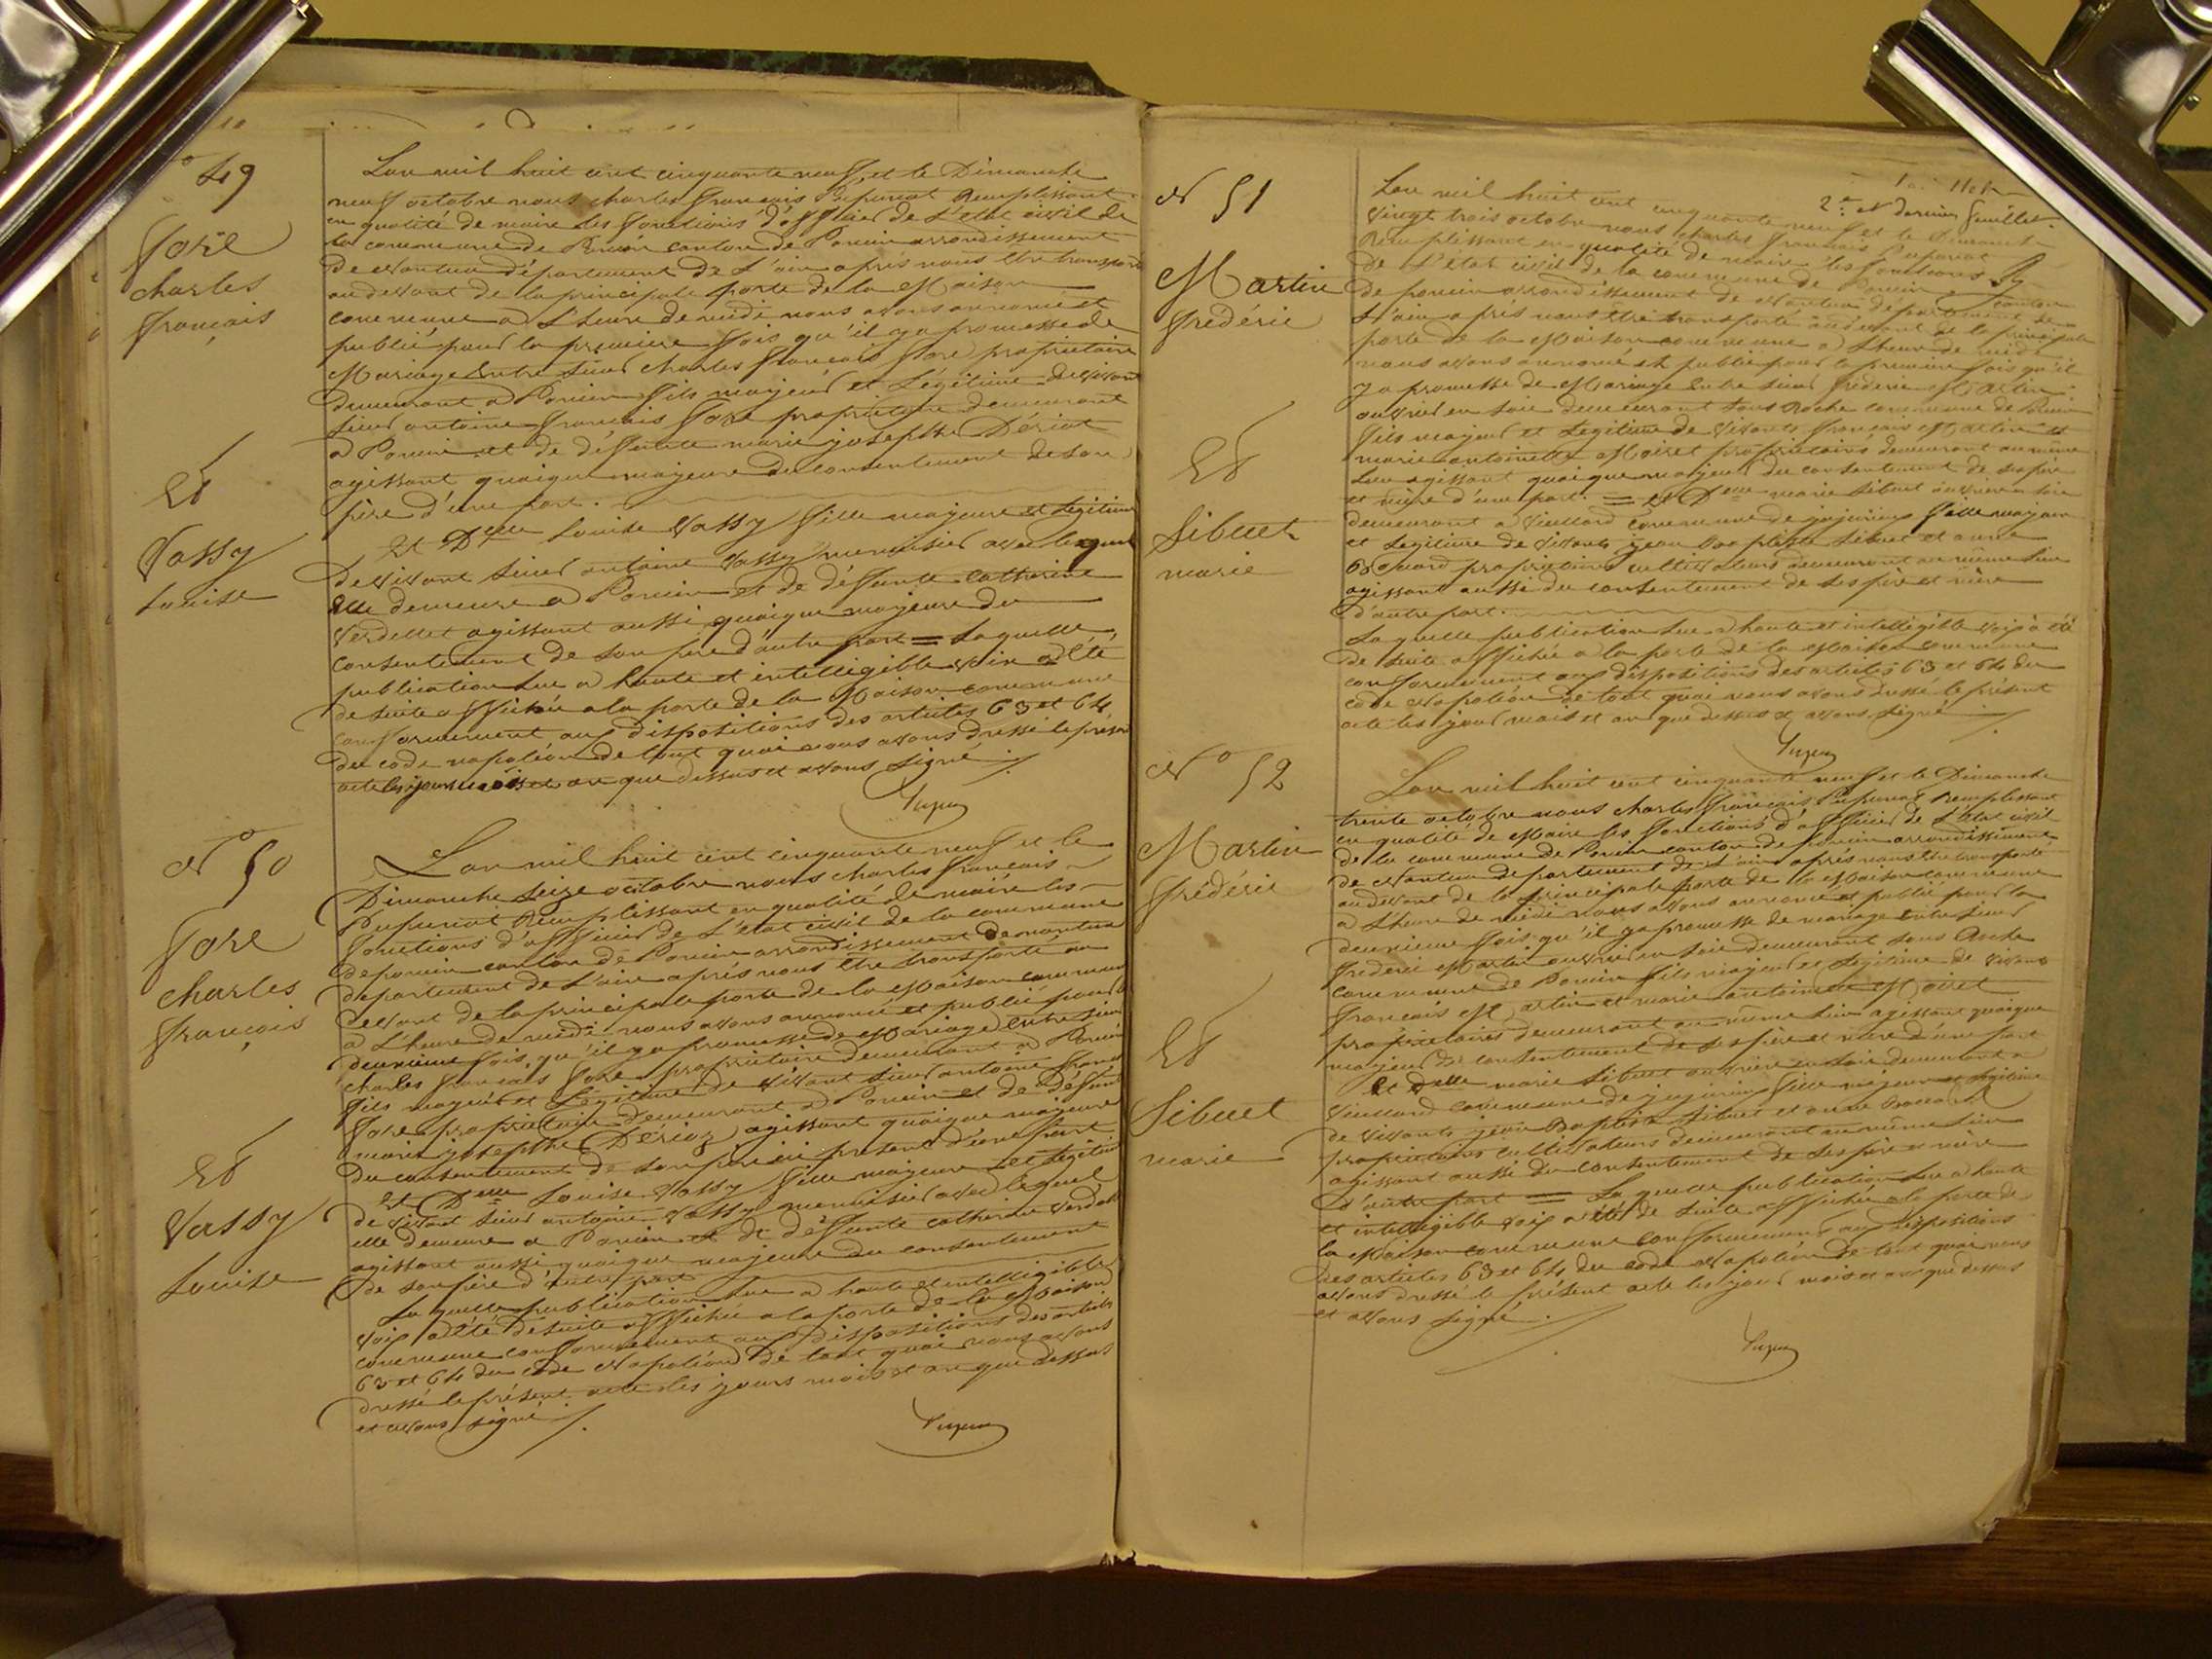 No 49
Gore
charles
français
Et
Vassy
Louise
L'an mil huit cent cinquante neuf, et le Dimanche
neuf octobre nous charles français Pupunat Remplissant
en qualité de maire les fonctions d'officier de L'état civil de
la commune de Poncin canton de Poncin arrondissement
de Nantua département de L'ain après nous être transporté
au devant de la principale porte de la Maison
commune a L'heure de midi nous avons annoncé et
publié pour la première fois qu'il y a promesse de
Mariage Entre Sieur Charles français Gore propriétaire
demeurant a Poncin fils majeur et Légitime de vivant
Sieur antoine français Gore propriétaire demeurant
a Poncin et de déffunte marie josepthe Dériat
agissant quoique majeure du consentement de son
père d'une part.
Et Delle Louise Vassy fille majeure et légitime
de vivant Sieur antoine Vassy menuisier avec lequel
Elle demeure a Poncin et de déffunte Catherine
Verdellet agissant aussi quoique majeure du
consentement de son père d'autre part = Laquelle
publication Lue a haute et intelligible voix a été
de suite affichée a la porte de la Maison commune
conformément aux dispositions des articles 63 et 64
du code napoléon de tout quoi nous avons dressé le présent
acte les jour mois et an que dessus et avons signé
No 50
Gore
charles
français
Et
Vassy
Louise
L'an mil huit cent cinquante neuf et le
Dimanche Seize octobre nous charles français
Pupunat Remplissant en qualité de maire les
fonctions d'officier de L'état civil de la commune
de poncin canton de Poncin arrondissement de nantua
département de L'ain après nous être transporté au
devant de la principale porte de la Maison commune
a L'heure de midi nous avons annoncé et publié pour la
deuxième fois, qu'il y a promesse de Mariage Entre Sieur
charles français Gore propriétaire demeurant a Poncin
fils majeur et Légitime de vivant Sieur antoine français
Gore propriétaire demeurant a Poncin et de défunte
marie josepthe Dériaz agissant quoique majeure
du consentement de son père ici présent d'une part
Et Delle Louise Vassy fille majeure et légitime
de vivant Sieur antoine Vassy menuisier avec lequel
elle demeure a Poncin et de déffunte catherine Verdellet
agissant aussi quoique majeure du consentement
de son père d'autre part
La quelle publication Lue a haute et intelligible
voix a été de suite affichée a la porte de la Maison
commune conformément aux dispositions des articles
63 et 64 du code Napoléon De tout quoi nous avons
dressé le présent acte les jours mois et an que dessus
et avons signé
N 51
Martin
frédéric
Et
Sibuet
marie
2e et dernier feuillet.
L'an mil huit cent cinquante neuf et le Dimanche
vingt trois octobre nous charles français Pupunat
Remplissant en qualité de maire les fonctions
de L'état civil de la commune de Poncin canton
de poncin arrondissement de Nantua département de
L'ain après nous être transporté au devant de la principale
porte de la Maison commune a L'heure de midi
nous avons annoncé et publié pour la première fois qu'il
y a promesse de Mariage Entre Sieur frédéric Martin
ouvrier en soie demeurant sous Roche commune de Poncin
fils majeur et Légitime de vivants français Martin et
marie antoinette Moiret propriétaires demeurant au même
Lieu agissant quoique majeur du consentement de ses père
et mère d'une part. = et Delle marie Sibuet ouvrière en soie
demeurant a Vieillard commune de jujurieux fille majeure
et Légitime de vivants jean Baptiste Sibuet et anne
propriétaires cultivateurs demeurant au même Lieu
agissant aussi du consentement de ses père et mère
d'autre part.
La quelle publication Lue a haute et intelligible voix a été
de suite affichée a la porte de la Maison commune
conformément aux dispositions des articles 63 et 64 du
code Napoléon de tout quoi nous avons dressé le présent
acte les jour mois et an que dessus et avons signé
No 52
Martin
frédéric
Et
Sibuet
marie
L'an mil huit cent cinquante neuf et le Dimanche
trente octobre nous charles français Pupunat Remplissant
en qualité de Maire les fonctions d'officier de L'état civil
de la commune de Poncin canton de Poncin arrondissement
de Nantua département de L'ain après nous être transporté
au devant de la principale porte de la Maison commune
a L'heure de midi nous avons annoncé et publié pour la
deuxième fois qu'il y a promesse de mariage Entre Sieur
frédéric Martin ouvrier en soie demeurant sous Roche
commune de Poncin fils majeur et Légitime de vivants
français Martin et marie antoinette Moiret
propriétaires demeurant au même Lieu agissant quoique
majeur du consentement de ses père et mère d'une part
Et Delle marie Sibuet ouvrière en soie demeurant a
Vieillard commune de jujurieux fille majeure et légitime
de vivants jean Baptiste Sibuet et anne
propriétaires cultivateurs demeurant au même Lieu
agissant aussi du consentement de ses père et mère
d'autre part = La quelle publication Lue a haute
et intelligible voix a été de suite affichée a la porte de
la Maison commune conformément aux dispositions
des articles 63 et 64 du code Napoléon De tout quoi nous
avons dressé le présent acte les jour mois et an que dessus
et avons signé.